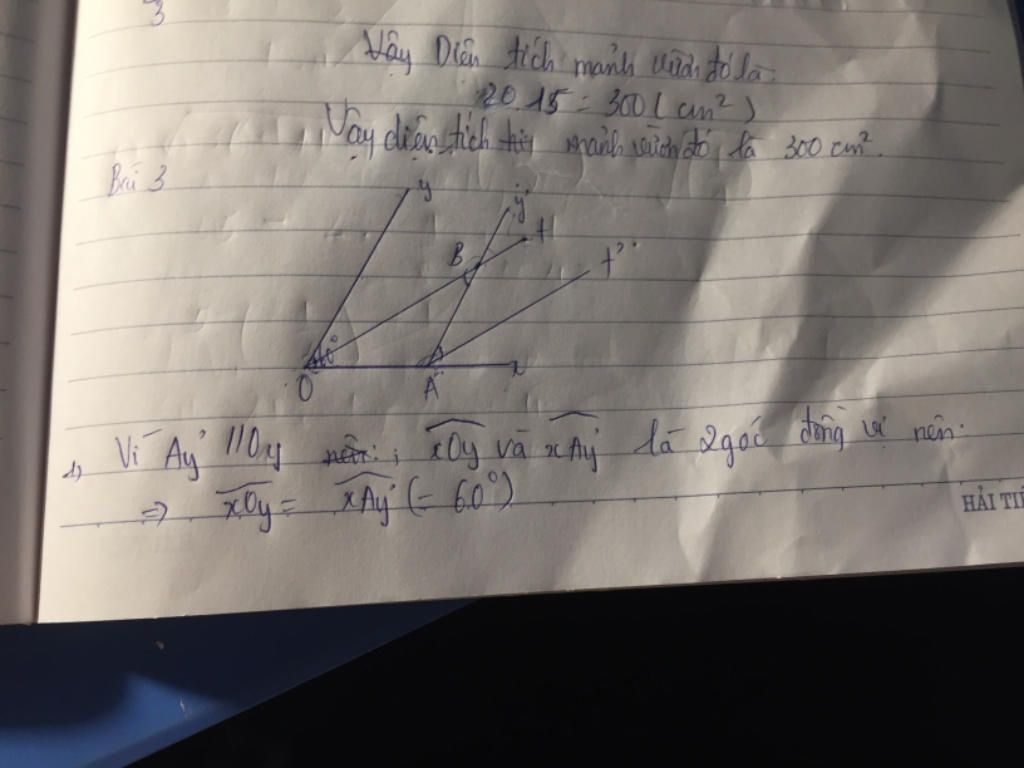 3
Vậy Diện tích mảnh vườn đó là:
20.15 = 300 (cm²)
Vậy diện tích mảnh vườn đó là 300 cm².
Bài 3
y
y'
t
B
t'
60°
O
A
x
1) Vì Ay' // Oy nên: ; xOy và xAy' là 2 góc đồng vị nên
⇒ xOy = xAy' (= 60°)
HẢI TI